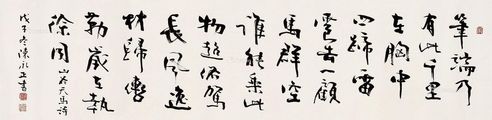 筆端乃
有此千里
在胸中
四蹄雷
雹去一顧
馬群空
誰能乘此
物超俗駕
長風逸
材歸轡
勒歲在執
除同 山谷天馬詩
戊子冬陳永正書